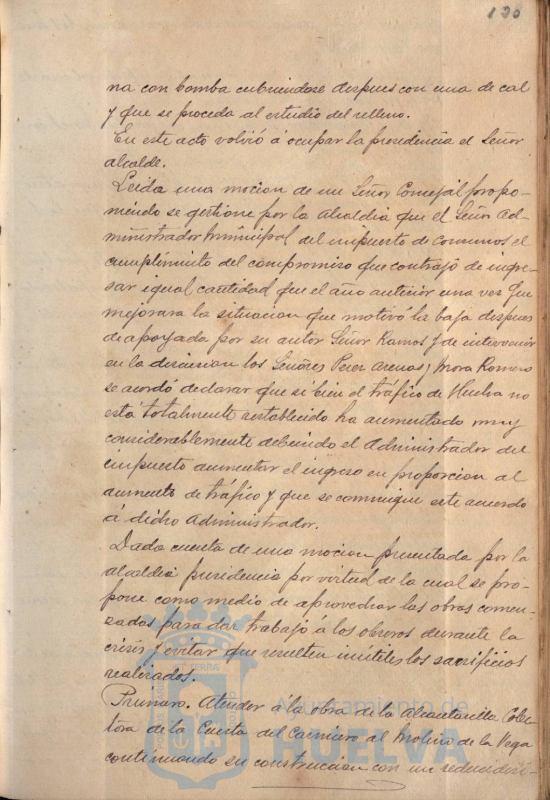 130
na con bomba cubriendose despues con una de cal
y que se proceda al estudio del relleno.
En este acto volvió á ocupar la presidencia el Señor
alcalde.
Leida una mocion de un Señor Concejal propo-
niendo se gestione por la Alcaldia que el Señor Ad-
ministrador municipal del impuesto de Consumos el
cumplimiento del compromiso que contrajo de ingre-
sar igual cantidad que el año anterior una vez que
mejorara la situacion que motivó la baja despues
de apoyada por su autor Señor Ramos y de intervenir
en la discusion los Señores Perez Arenas y Mora Romero
se acordó declarar que si bien el tráfico de Huelva no
está totalmente restablecido ha aumentado muy
considerablemente debiendo el Administrador del
impuesto aumentar el ingreso en proporcion al
aumento de tráfico y que se comunique este acuerdo
á dicho Administrador.
Dada cuenta de una mocion presentada por la
alcaldia presidencia por virtud de la cual se pro-
pone como medio de aprovechar las obras comen-
zadas para dar trabajo á los obreros durante la
crisis y evitar que resulten inútiles los sacrificios
realizados.
Primero. Atender á la obra de la Alcantarilla Colec-
tora de la Cuesta del Carnicero al Molino de la Vega
continuando su construccion con un
Ayuntamiento de
HUELVA